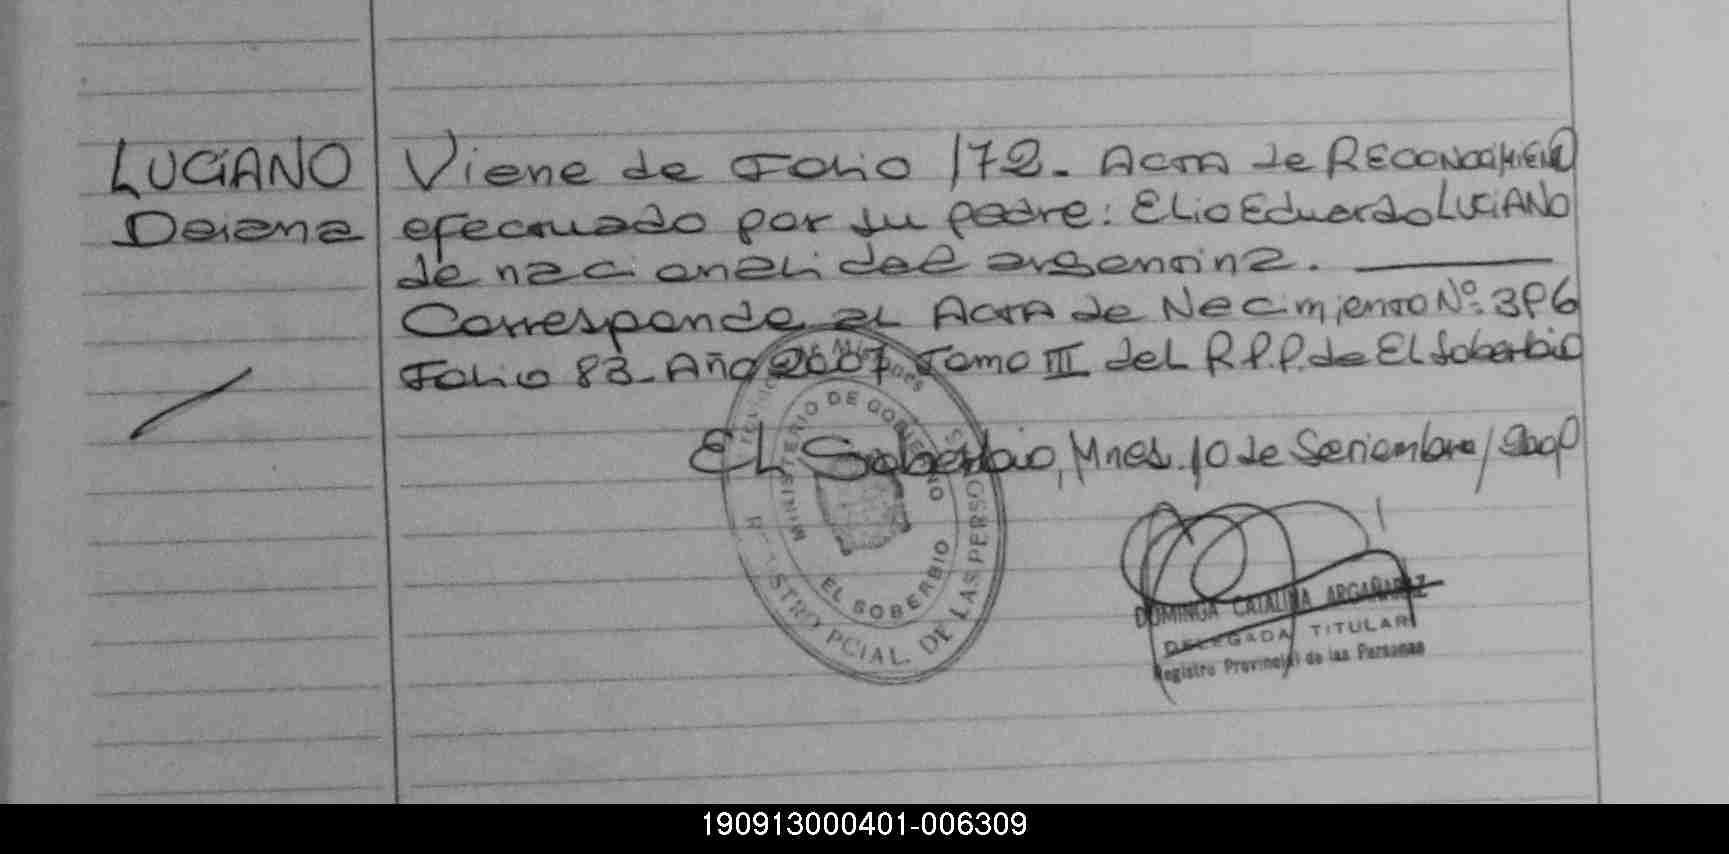 LUCIANO
Daiana
Viene de Folio 172. Acta de RECONOCIMIENTO
efectuado por su padre: Elio Eduardo LUCIANO
de nacionalidad argentina.
Corresponde al Acta de Nacimiento Nº: 396
Folio 83. Año 2007 Tomo III del R.P.P. de El Soberbio
El Soberbio, Mnes. 10 de Setiembre/2009
MINISTERIO DE GOBIERNO
EL SOBERBIO
REGISTRO PCIAL. DE LAS PERSONAS
DOMINGA CATALINA ARGAÑARAZ
DELEGADA TITULAR
Registro Provincial de las Personas
190913000401-006309